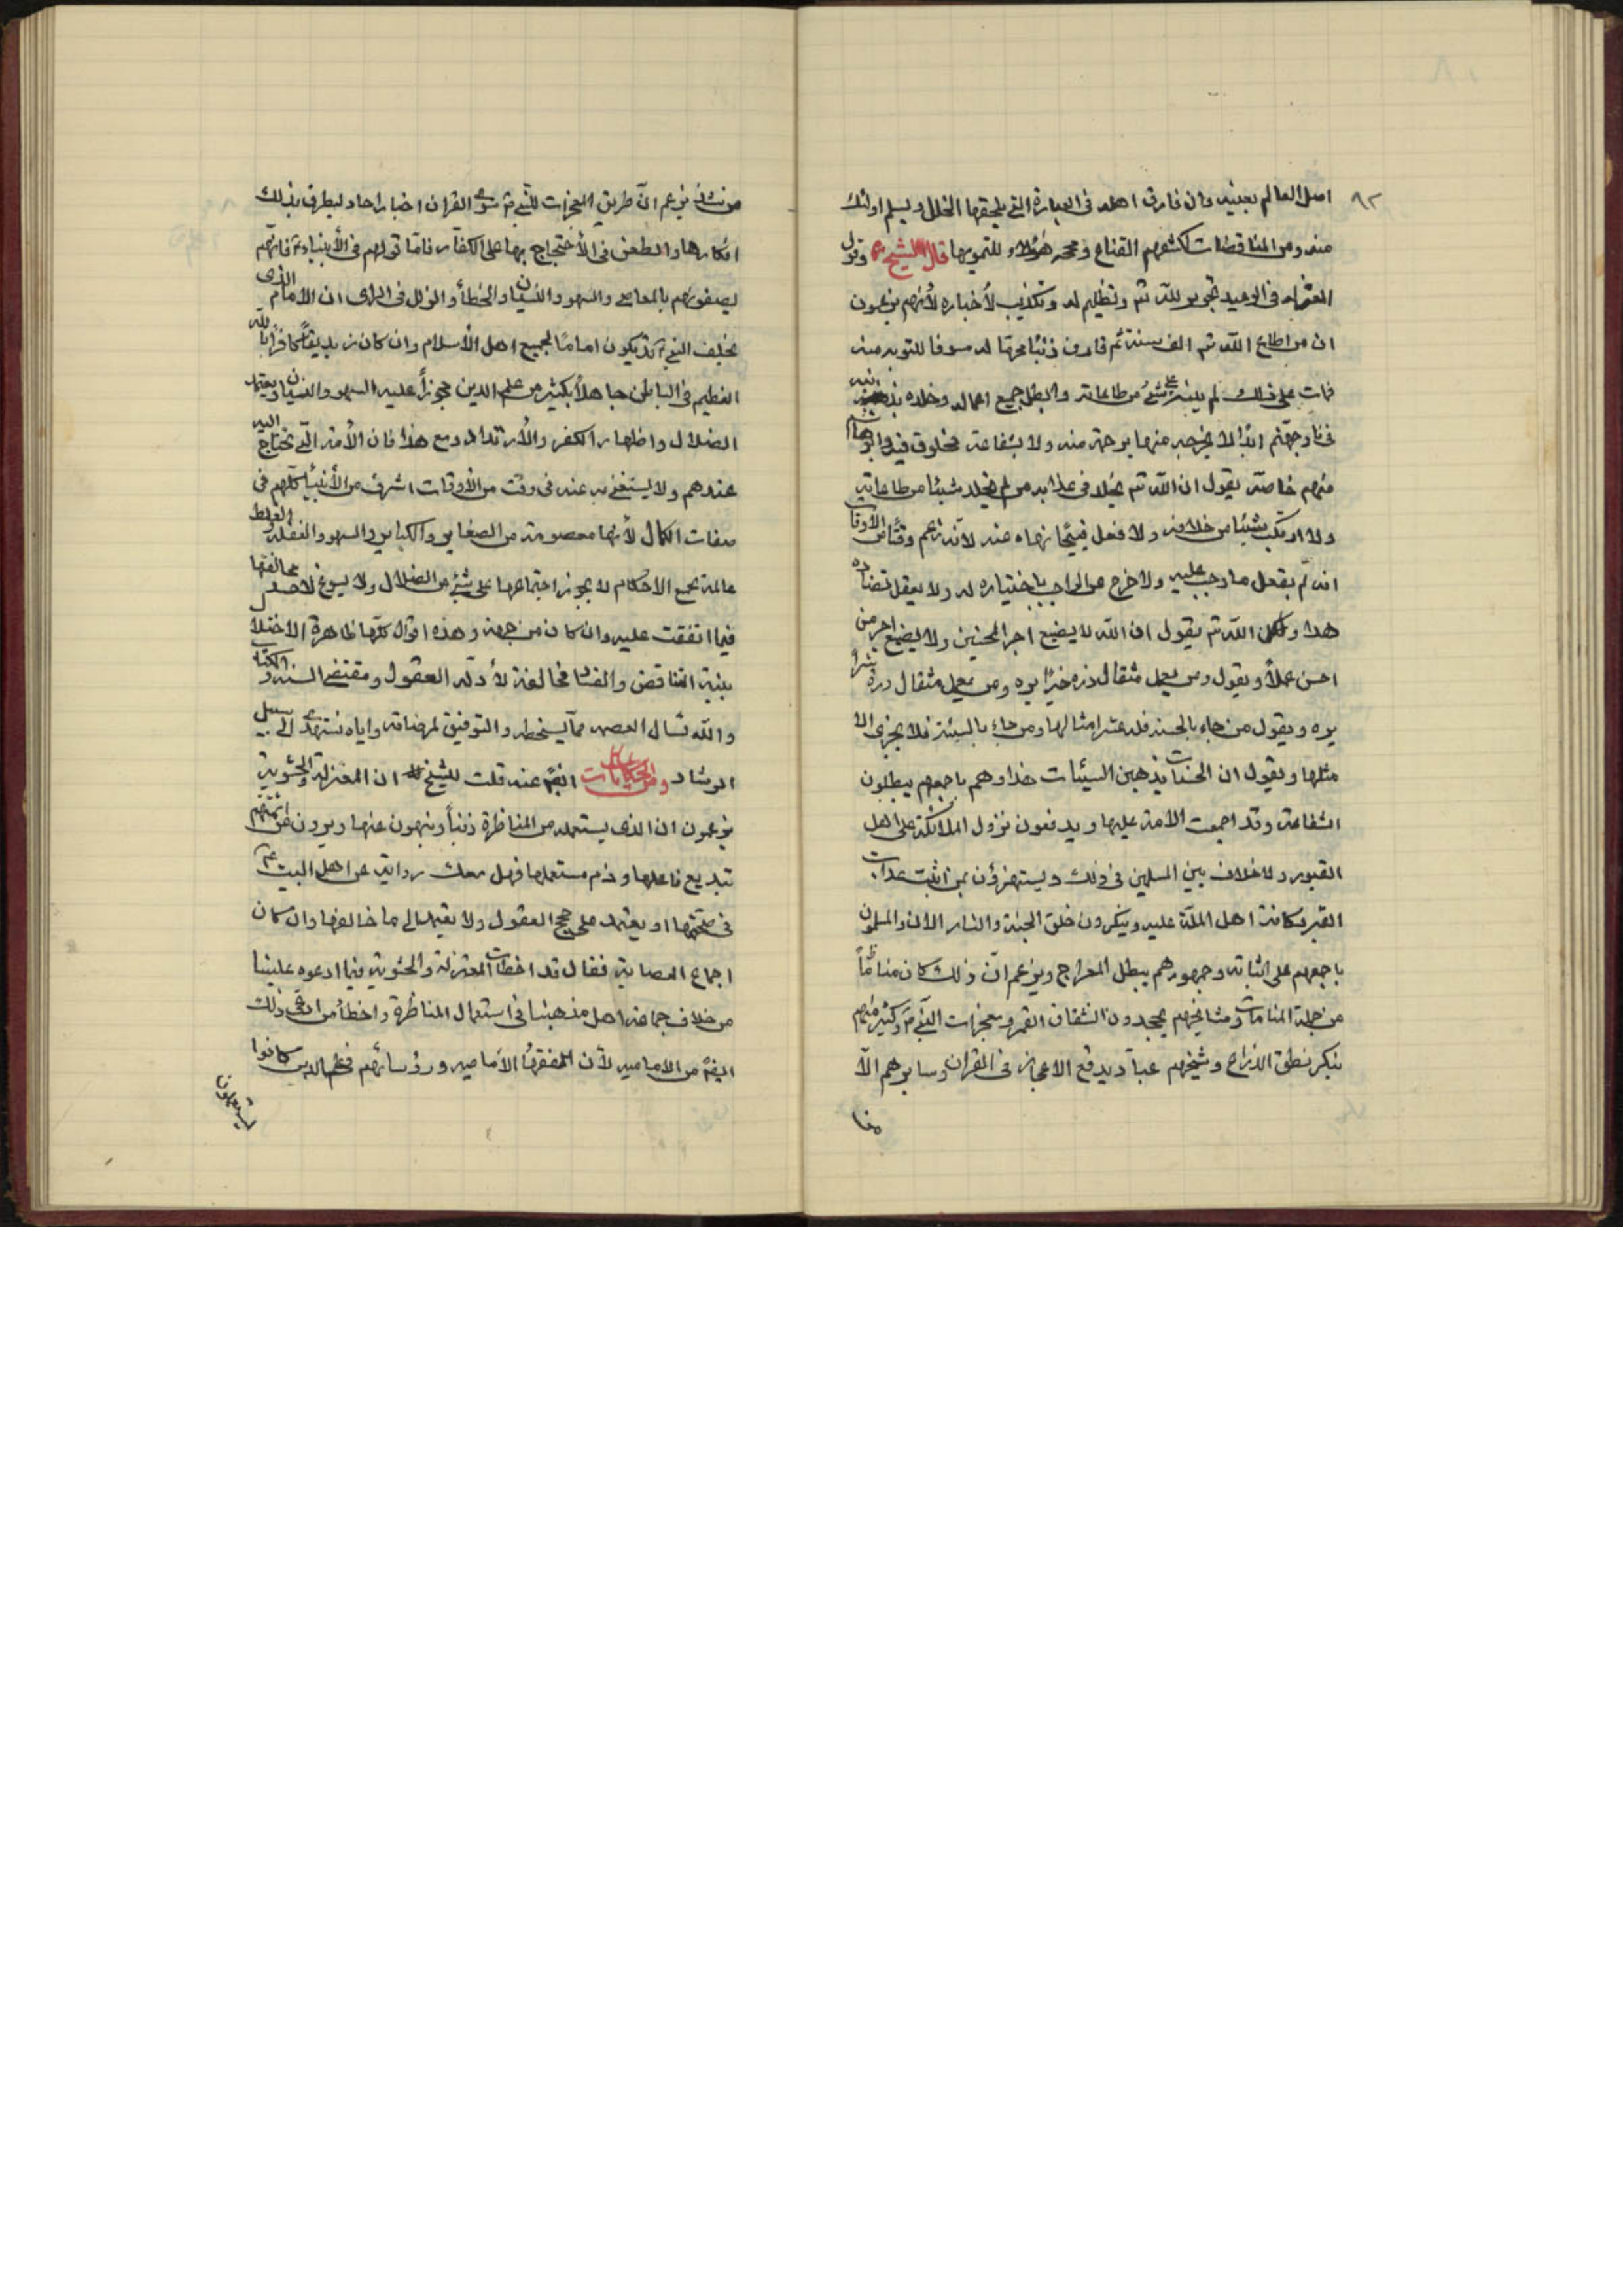 ٨٢
اصل العالم بعينه وان فارق اهله فى العبارة التى يلحقها الخلل و ليسلم اولئك
منه ومن المناقضات لكشفهم القناع و هؤلاء للتمويهها قال الشيخ وقول
المعتزلة فى الوعيد تجوير للّه تم وتظليم له وتكذيب لأخباره لأنهم يزعمون
ان من اطاع اللّه تم الف سنة ثم قارف ذنبًا محرمًا له مسوفا للتوبة منه
فمات على ذلك لم يثبه على شئ من طاعاته وابطل جميع اعماله وخلده بذنبه
فى نار جهنم ابدًا لا يخرجه منها برحمة منه ولا بشفاعة مخلوق فيه وابوهاشم
منهم خاصة يقول ان اللّه تم يخلد فى عذابه من لم يخلد شيئا من طاعاته
ولا ارتكب شيئا من خلافه ولا فعل قبيحًا نهاه عنه لأنه زعم وقتًا من الاوقات
انه لم يفعل ما وجب عليه ولا خرج عن الواجب باختياره له ولا يعقل تضاده
هذا و اللّه تم يقول ان اللّه لا يضيع اجر المحسنين ولا يضيع اجر من
احسن عملًا ويقول ومن يعمل مثقال ذرة خيرًا يره ومن يعمل مثقال ذرة شرًا
يره ويقول من جاء بالحسنة فله عشر امثالها ومن جاء بالسيئة فلا يجزى الا
مثلها ويقول ان الحسنات يذهبن السيئات هذا وهم باجمعهم يبطلون
الشفاعة وقد اجمعت الامة عليها ويدفعون نزول الملائكة على اهل
القبور ولا خلاف بين المسلمين فى ذلك ويستهزؤن بمن اثبت عذاب
القبر وكافة اهل الملة عليه وينكرون خلق الجنة والنار الان والمسلمون
باجمعهم على اثباته وجمهورهم يبطل المعراج ويزعم انّ ذلك كان منامًا
من جملة المنامات ومشايخهم يجحدون انشقاق القمر ومعجزات النبى وكثير منهم
ينكر نطق الذراع وشيخهم عباد يدفع الاعجاز فى القران وسايرهم الّا
من شذ يزعم انّ طريق المعجزات للنبى سوى القران اخبار احاد ليطرق بذلك
انكارها والطعن فى الأحتجاج بها على الكفار فامّا قولهم فى الأنبياء فانهم
يصفونهم بالمعاصى والسهو والنسيان والخطأ والزلل فى الراى ان الأمام الذى
يخلف النبى قد يكون امامًا لجميع اهل الأسلام وان كان زنديقًا كافرًا باللّه
العظيم فى الباطن جاهلًا بكثير من علم الدين مجوزًا عليه السهو والنسيان ويعتمد
الضلال واظهار الكفر والأرتداد ومع هذا فان الأمة التى تحتاج اليه
عندهم ولا يستغنى به عنه فى وقت من الأوقات اشرف من الأنبياء كلهم فى
صفات الكمال لأنها معصومة من الصغاير والكباير والسهو والغفلة والغلط
عالمة بجميع الاحكام لا يجوز اجتماعها على شئ من الضلال ولا يسوغ لاحد مخالفتها
فيما اتفقت عليه وان كان من جهة وهذه اقوال كلها ظاهرة الاختلا
بينة التناقض والفساد مخالفة لأدلة العقول ومقتضى السنة والكتاب
واللّه نسأل العصمة مما يسخطه والتوفيق لمرضاته واياه نستهدى الى سبيل
الرشاد ومن حكايات ايضًا عنه قلت للشيخ ان المعتزلة والحشوية
يزعمون ان الذى يستعمله من المناظرة ذنبًا وينهون عنها ويروون عن ائمتهم
تبديع فاعلها وذم مستعملها فهل معك رواية عن اهل البيت عم
فى صحتها او يعتمد على حجج العقول ولا يقيد الى ما خالفها وان كان
اجماع العصابة فقال قد اخطأت المعتزلة والحشوية فيما ادعوه علينا
من خلاف جماعة اهل مذهبنا فى استعمال المناظرة واخطأ من ادعى ذلك
ايضًا من الامامية لأن فقهاء الأمامية ورؤسائهم فى علم الدين كانوا